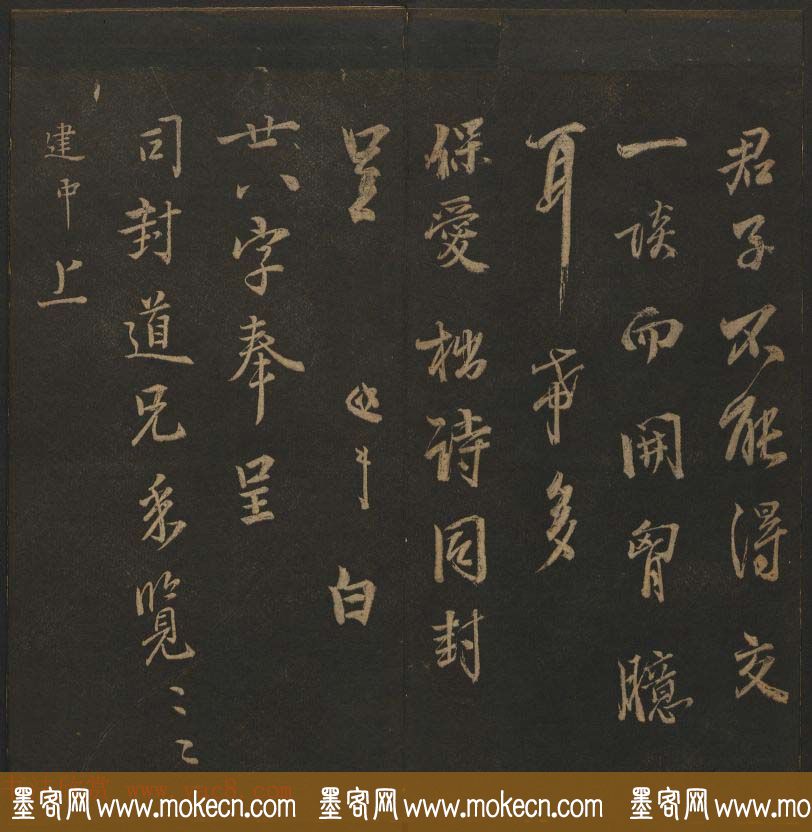 君子不能得交
一談而開胷臆
耳 希多
保愛 拙詩同封
呈 白
廿八字奉呈
司封道兄采覽
建中上
墨客网 www.mokecn.com 墨客网 www.mokecn.com 墨客网 www.mo